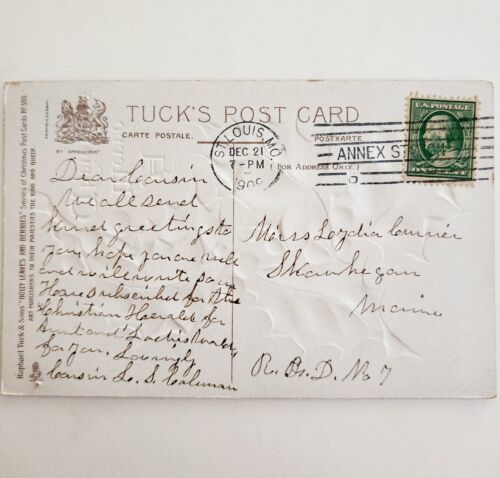 TUCK'S POST CARD
CARTE POSTALE.
POSTKARTE.
( FOR ADDRESS ONLY. )
BY APPOINTMENT
Raphael Tuck & Sons' "HOLLY LEAVES AND BERRIES" Series of Christmas Post Cards Nº 500.
ART PUBLISHERS TO THEIR MAJESTIES THE KING AND QUEEN
ST. LOUIS, MO.
DEC 21
7-PM
1909
ANNEX ST
U.S. POSTAGE
Dear Cousin
We all send
kind greetings to
you hope you are well
and will write soon
I have subscribed for the
Christian Herald for
Aunt and
for you. Lovingly
Cousin L. S. Coleman
Miss Loydia Currier
Skowhegan
Maine
R. F. D. No 7